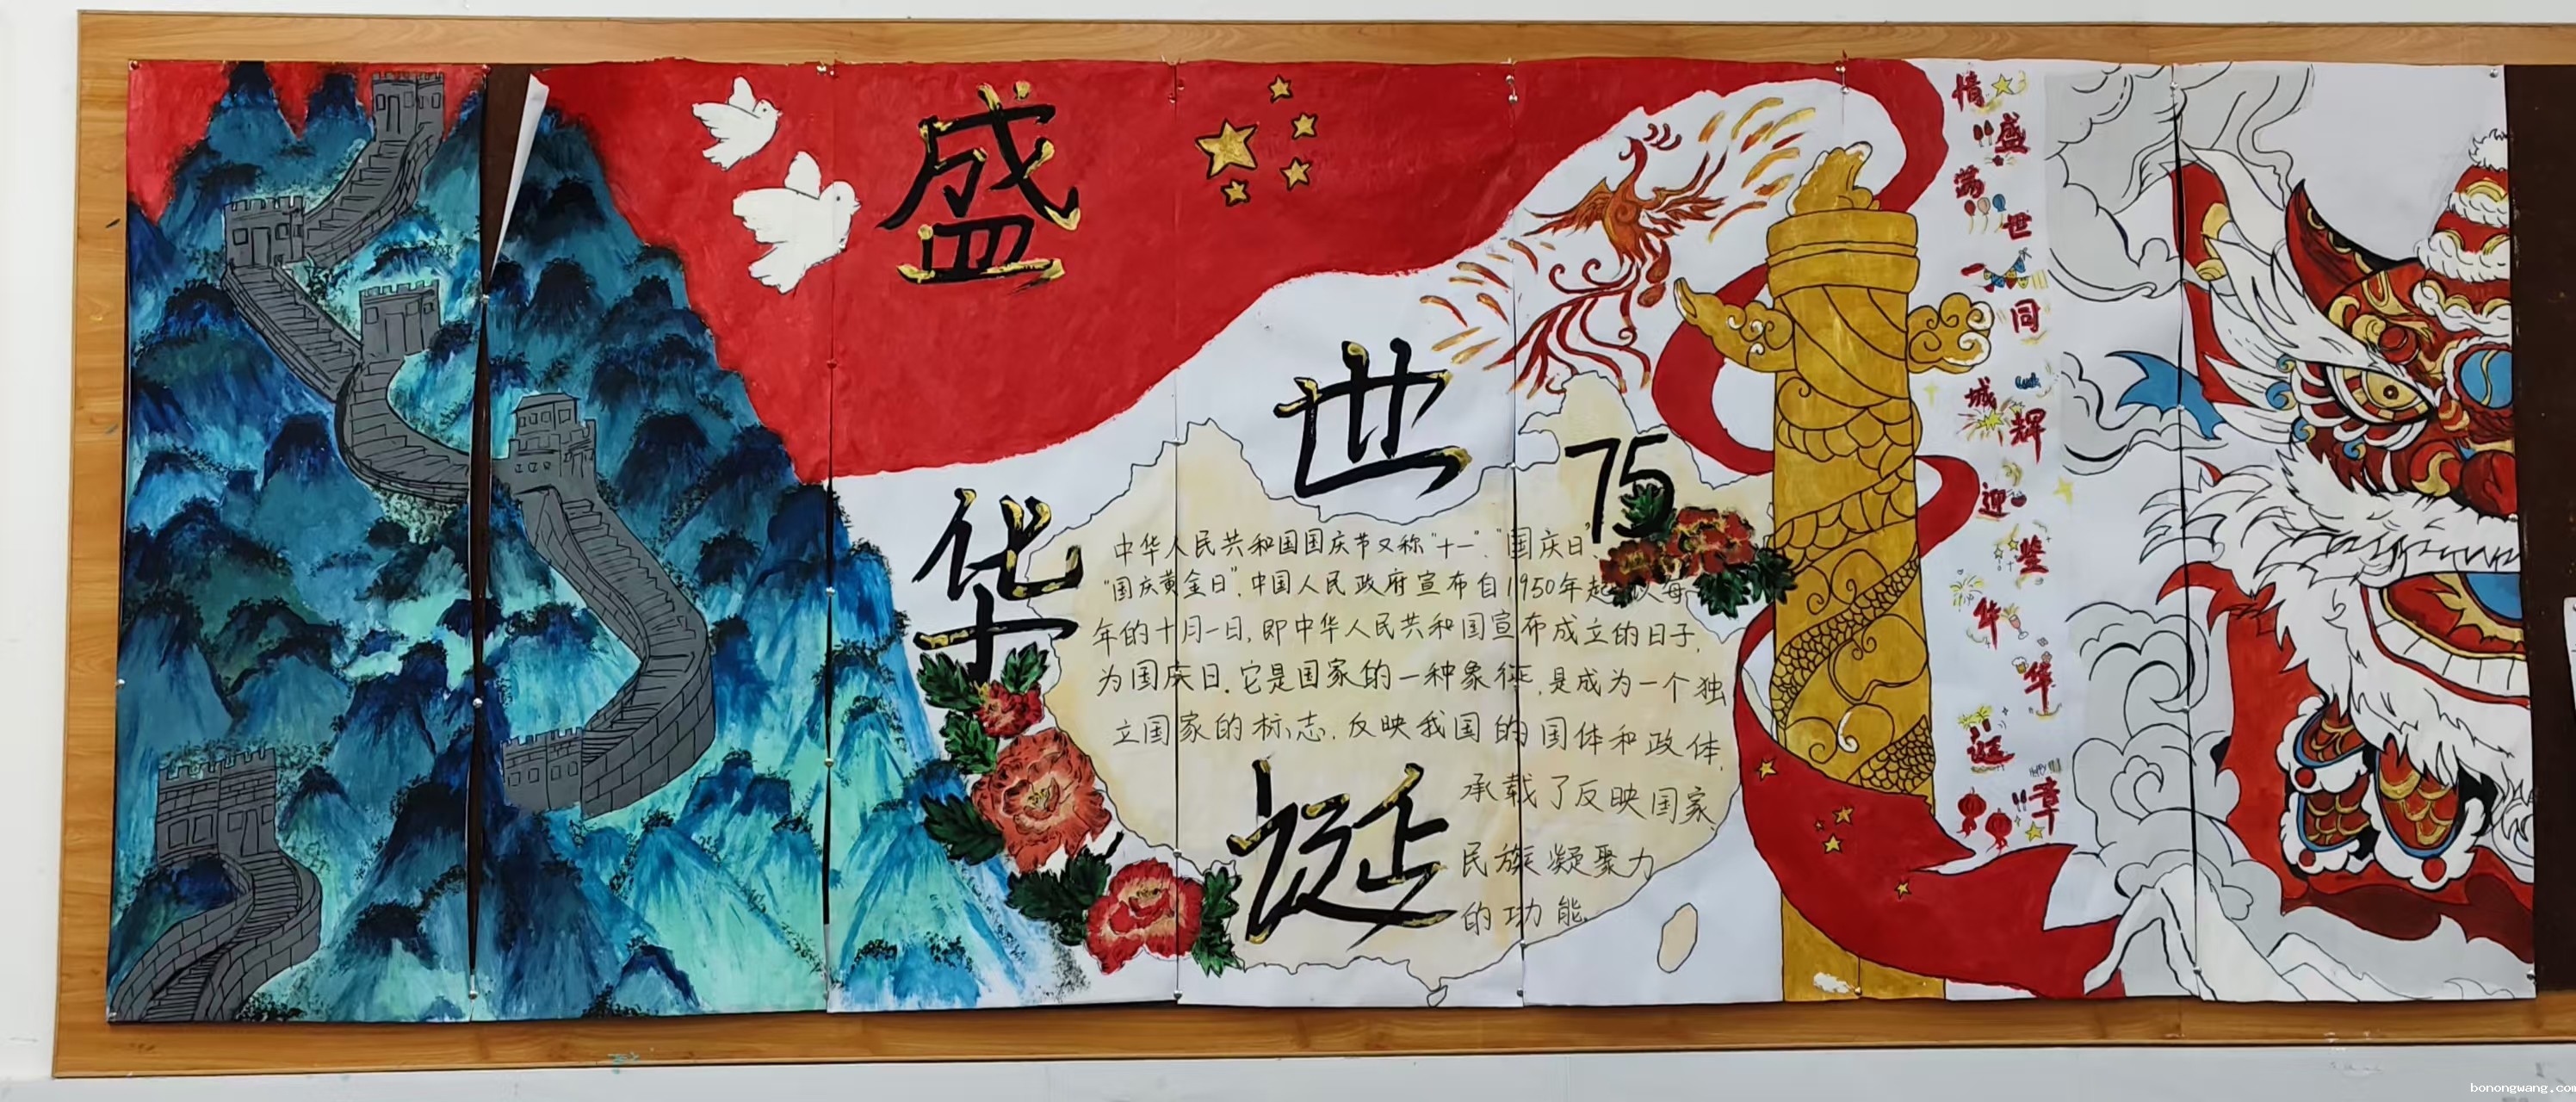 盛
世
华
诞
75
中华人民共和国国庆节又称"十一"、"国庆日"、
"国庆黄金日".中国人民政府宣布自1950年起 以每
年的十月一日,即中华人民共和国宣布成立的日子,
为国庆日.它是国家的一种象征,是成为一个独
立国家的标志,反映我国的国体和政体,
承载了反映国家、
民族凝聚力
的功能.
情满一城迎华诞
盛世同辉鉴华章
bonongwang.com